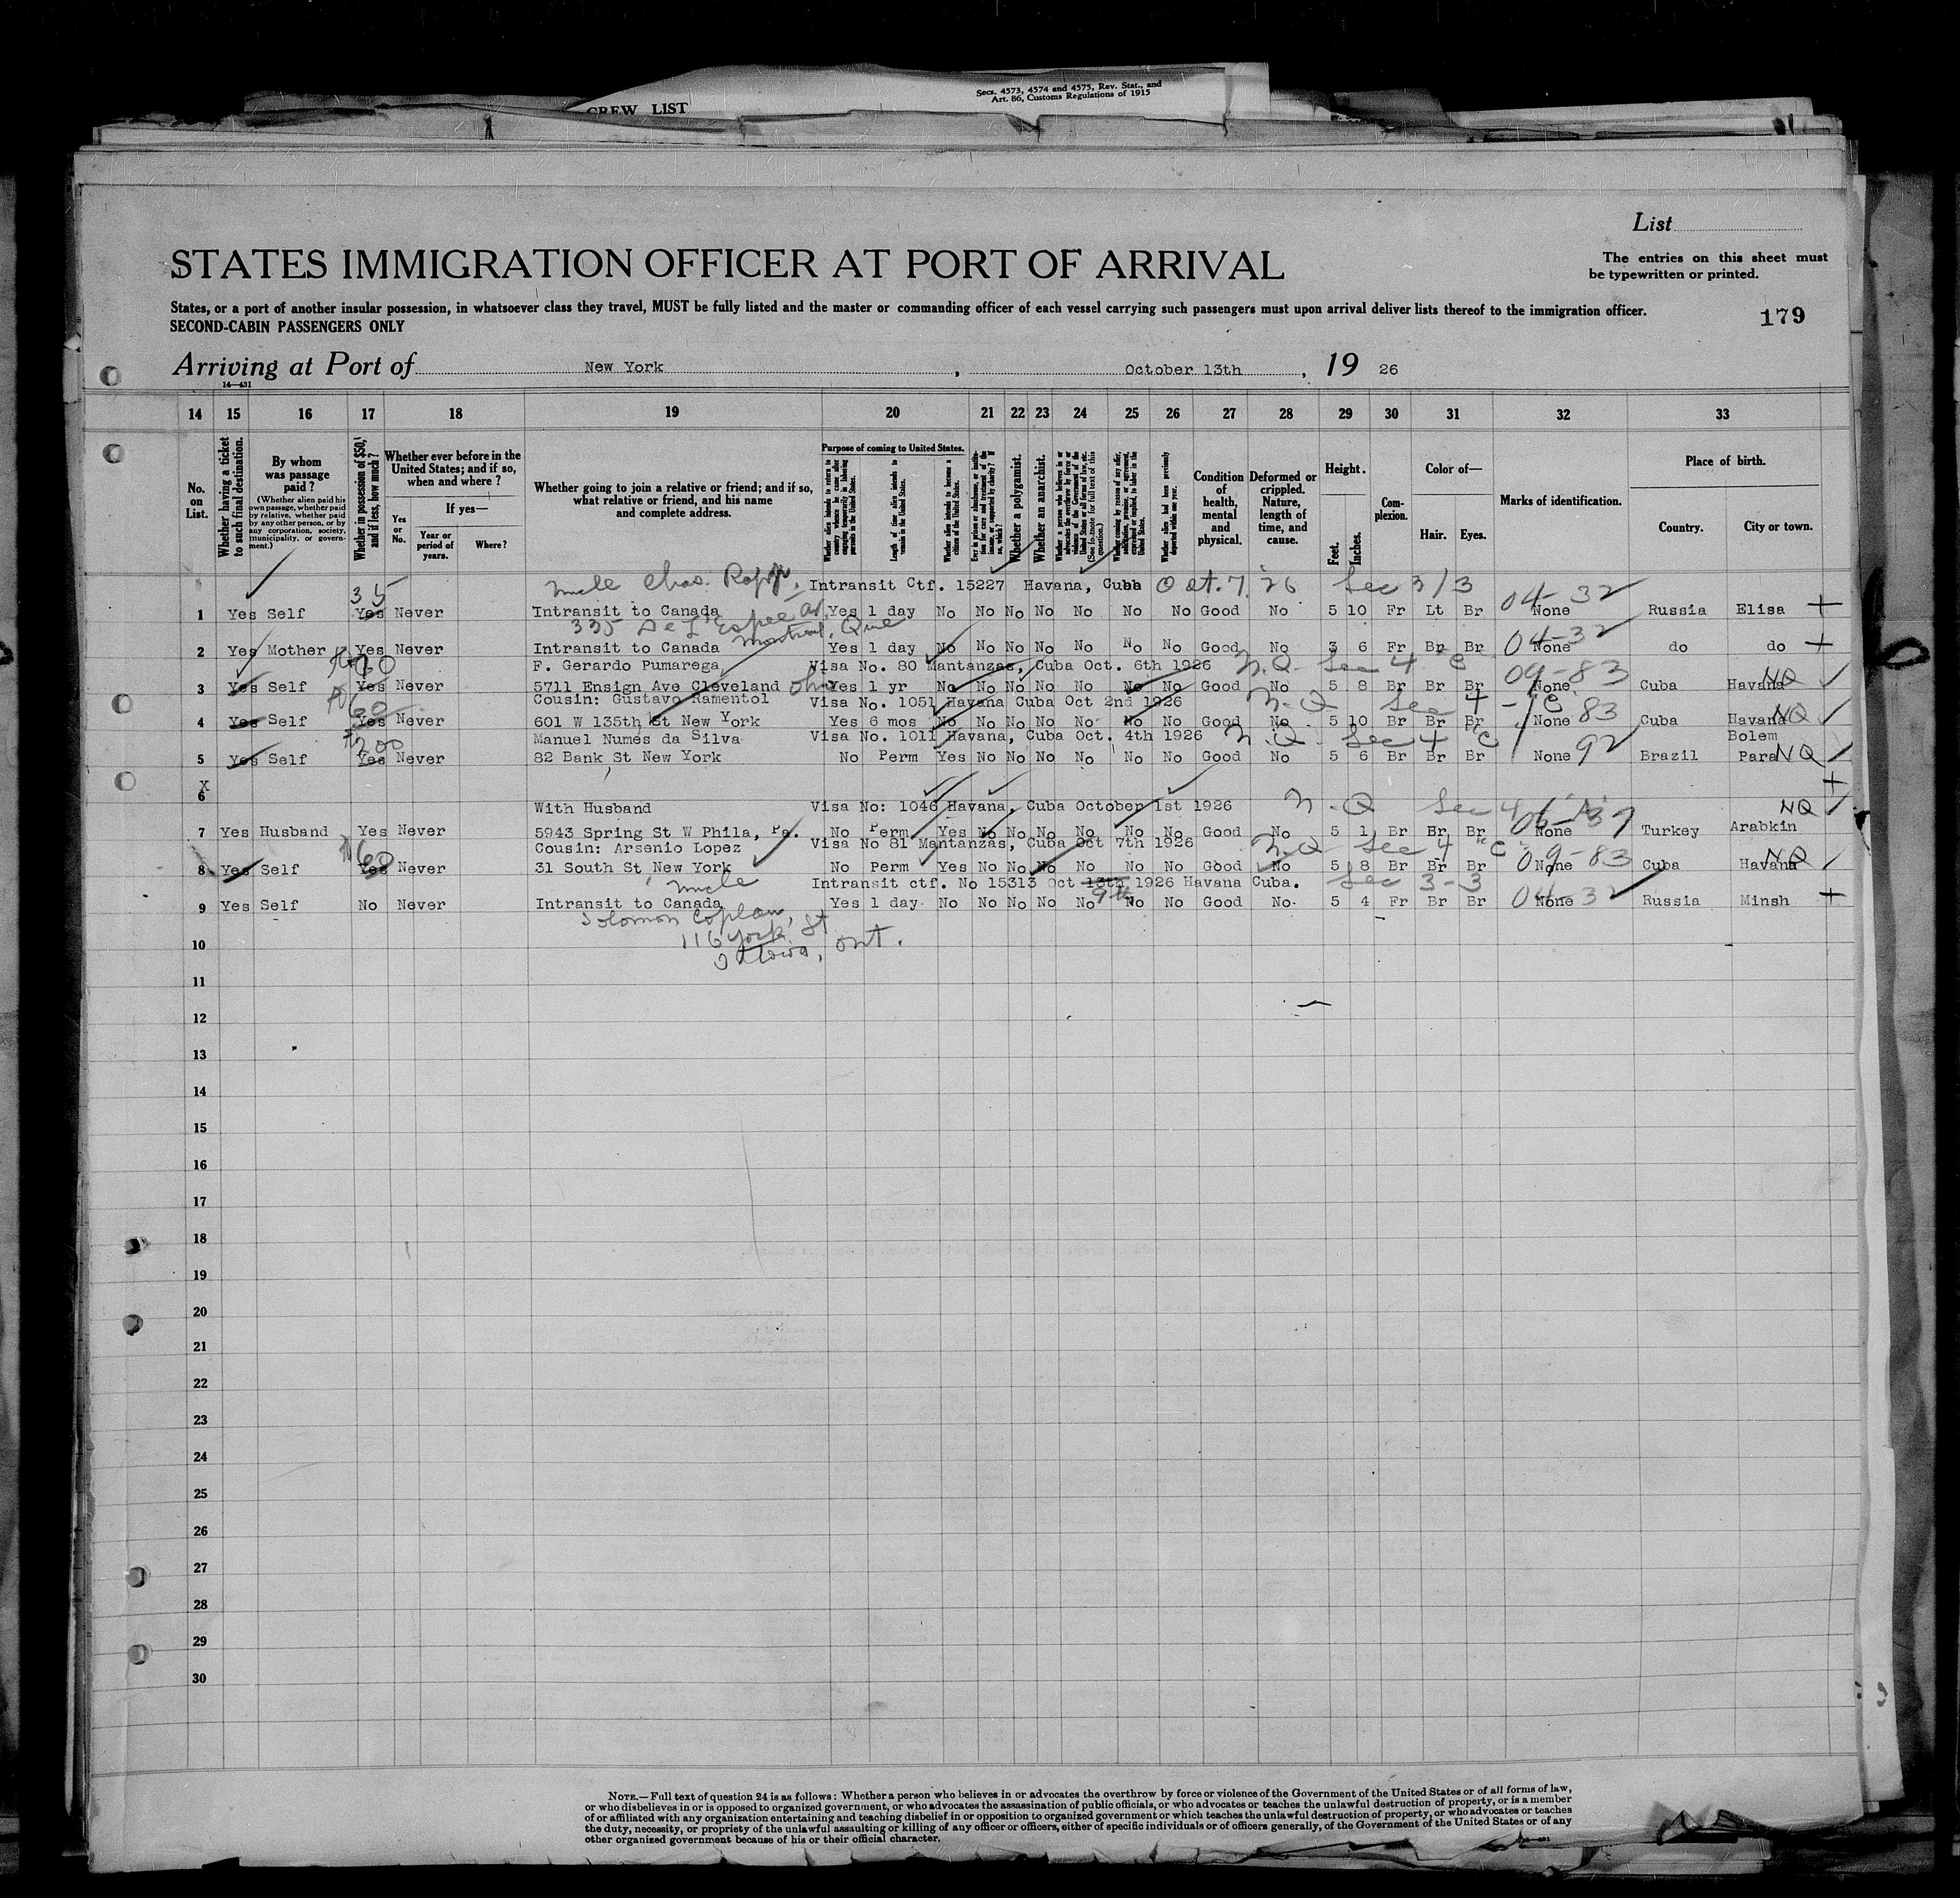 CREW LIST
Secs. 4573, 4574 and 4575, Rev. Stat., and
Art. 86, Customs Regulations of 1915
List
STATES IMMIGRATION OFFICER AT PORT OF ARRIVAL
The entries on this sheet must
be typewritten or printed.
States, or a port of another insular possession, in whatsoever class they travel, MUST be fully listed and the master or commanding officer of each vessel carrying such passengers must upon arrival deliver lists thereof to the immigration officer.
SECOND-CABIN PASSENGERS ONLY
179
Arriving at Port of New York, October 13th, 19 26
14—431
14 15 16 17 18 19 20 21 22 23 24 25 26 27 28 29 30 31 32 33
No. on List.
Whether having a ticket to such final destination.
By whom was passage paid?
(Whether alien paid his own passage, whether paid by relative, whether paid by any other person, or by any corporation, society, municipality, or government.)
Whether in possession of $50, and if less, how much?
Whether ever before in the United States; and if so, when and where?
Yes or No.
If yes—
Year or period of years.
Where?
Whether going to join a relative or friend; and if so, what relative or friend, and his name and complete address.
Purpose of coming to United States.
Whether alien intends to return to country whence he came after engaging temporarily in laboring pursuits in the United States.
Length of time alien intends to remain in the United States.
Whether alien intends to become a citizen of the United States.
Whether a polygamist.
Whether an anarchist.
(See footnote for full text of this question.)
Whether alien had been previously deported within one year.
Condition of health, mental and physical.
Deformed or crippled. Nature, length of time, and cause.
Height.
Feet. Inches.
Complexion.
Color of—
Hair. Eyes.
Marks of identification.
Place of birth.
Country. City or town.
Uncle Chas. Intransit Ctf. 15227 Havana, Cuba Oct. 7, 26 Sec 3/3
35 04-32
1 Yes Self Yes Never Intransit to Canada Yes 1 day No No No No No No No Good No 5 10 Fr Lt Br None Russia Elisa +
335 De L'Espee Av Montreal, Que
2 Yes Mother Yes Never Intransit to Canada Yes 1 day No No No No No No No Good No 3 6 Fr Br Br 04-32 None do do +
F. Gerardo Pumarega Visa No. 80 Mantanzas, Cuba Oct. 6th 1926 N.Q. Sec 4 "C" 09-83
3 Yes Self Yes Never 5711 Ensign Ave Cleveland Ohio Yes 1 yr No No No No No No No Good No 5 8 Br Br Br None Cuba Havana NQ
Cousin: Gustavo Ramentol Visa No. 1051 Havana Cuba Oct 2nd 1926 N-Q Sec 4-C
60
4 Yes Self Yes Never 601 W 135th St New York Yes 6 mos No No No No No No No Good No 5 10 Br Br Br None 83 Cuba Havana NQ
Manuel Numes da Silva Visa No. 1011 Havana, Cuba Oct. 4th 1926 N.Q. Sec 4 "C" Bolem
200
5 Yes Self Yes Never 82 Bank St New York No Perm Yes No No No No No No Good No 5 6 Br Br Br None 92 Brazil Para NQ
X
6 +
With Husband Visa No: 1046 Havana, Cuba October 1st 1926 N-Q Sec 4 NQ
7 Yes Husband Yes Never 5943 Spring St W Phila, Pa. No Perm Yes No No No No No No Good No 5 1 Br Br Br None Turkey Arabkin
Cousin: Arsenio Lopez Visa No 81 Mantanzas, Cuba Oct 7th 1926 N-Q Sec 4 "C"
60 09-83
8 Yes Self Yes Never 31 South St New York No Perm Yes No No No No No No Good No 5 8 Br Br Br None Cuba Havana NQ
Uncle Intransit ctf. No 15313 Oct 13th 9th 1926 Havana Cuba. Sec 3-3
9 Yes Self No Never Intransit to Canada Yes 1 day No No No No No No No Good No 5 4 Fr Br Br 04-32 None Russia Minsh +
Solomon Coplan,
116 York St
Ottawa, Ont.
10
11
12
13
14
15
16
17
18
19
20
21
22
23
24
25
26
27
28
29
30
NOTE.—Full text of question 24 is as follows: Whether a person who believes in or advocates the overthrow by force or violence of the Government of the United States or of all forms of law,
or who disbelieves in or is opposed to organized government, or who advocates the assassination of public officials, or who advocates or teaches the unlawful destruction of property, or is a member
of or affiliated with any organization entertaining and teaching disbelief in or opposition to organized government or which teaches the unlawful destruction of property, or who advocates or teaches
the duty, necessity, or propriety of the unlawful assaulting or killing of any officer or officers, either of specific individuals or of officers generally, of the Government of the United States or of any
other organized government because of his or their official character.